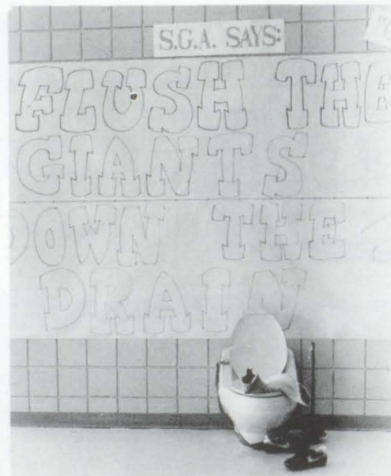 S.G.A. SAYS:
FLUSH THE
GIANTS
DOWN THE
DRAIN